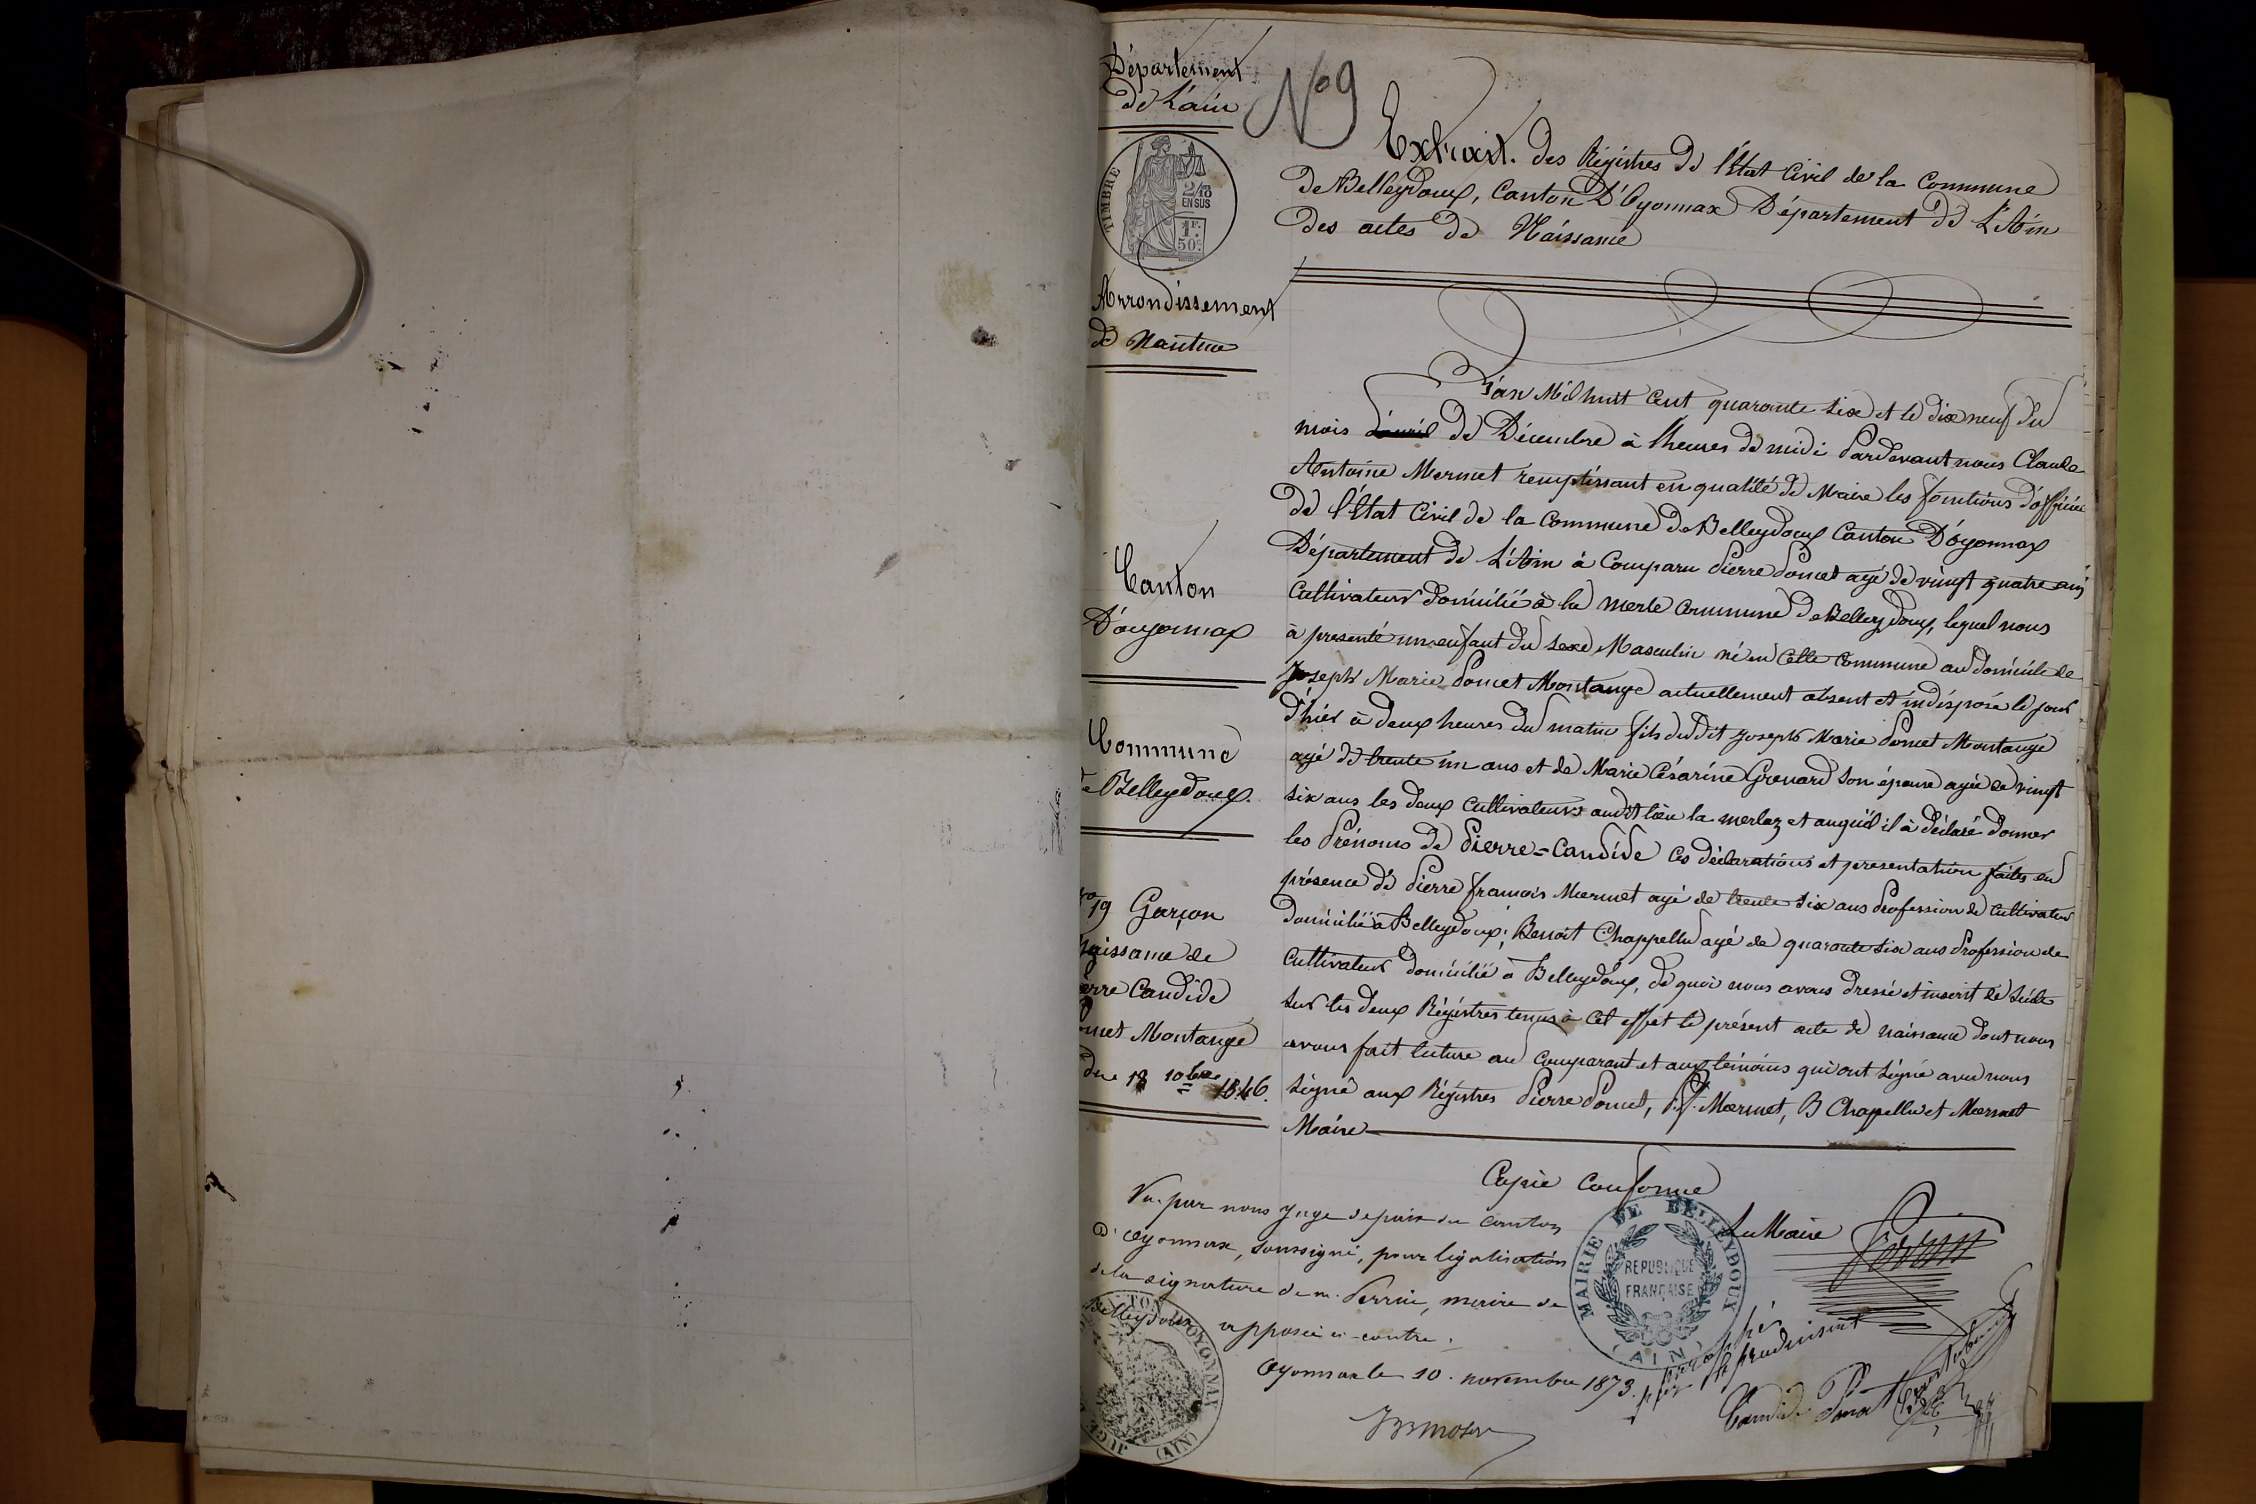 Département
de L'ain
N° 9
TIMBRE
2/10
EN SUS
1F.
50c.
Arrondissement
de Nantua
Canton
D'oyonnax
Commune
de Belleydoux.
No 19 Garçon
Naissance de
Pierre Candide
Poncet Montange
du 18 10bre 1846.
Extrait des Régistres de l'État Civil de la Commune
de Belleydoux, Canton D'Oyonnax Département de L'Ain
des actes de Naissance
L'an Mil huit Cent quarante six et le dix neuf du
mois d'avril de Décembre à l'heures de midi Pardevant nous Claude
Antoine Mermet remplissant en qualité de Maire les fonctions d'officier
de l'État Civil de la Commune de Belleydoux Canton D'oyonnax
Département de L'Ain à Comparu Pierre Poncet agé de vingt quatre ans
Cultivateur domicilié à la Merle Commune de Belleydoux, lequel nous
à presenté un enfant du sexe Masculin né en Cette Commune au domicile de
Joseph Marie Poncet Montange actuellement absent et indisposé le jour
d'hier à deux heures du matin fils dudit Joseph Marie Poncet Montange
agé de trente un ans et de Marie Césarine Grenard son épouse agée de vingt
six ans les deux Cultivateurs audit lieu la merlaz et auquel il à déclaré donner
les Prénoms de Pierre=Candide Ces déclarations et presentation faites en
présence de Pierre françois Mermet agé de trente six ans Profession de Cultivateur
domicilié à Belleydoux; Benoit Chappellu agé de quarante six ans Profession de
Cultivateur domicilié à Belleydoux, de quoi nous avons dressé et inscrit de suite
sur les deux Régistres tenus à Cet effet le présent acte de naissance dont nous
avons fait lecture au Comparant et aux témoins qui ont signé avec nous
signé aux Régistres Pierre Poncet, P.f. Mermet, B Chappellu et Mermet
Maire
Copie Conforme
Le Maire Perrin
MAIRIE DE BELLEYDOUX
REPUBLIQUE
FRANÇAISE
(AIN)
Vu par nous Juge de paix du canton
d'oyonnax, soussigné, pour légalisation
de la signature de m. Perrin, maire de
Belleydoux apposée ci-contre.
Oyonnax le 10. novembre 1873.
CANTON D'OYONNAX
JUGE
(AIN)
paraphé
par
Candide Poncet